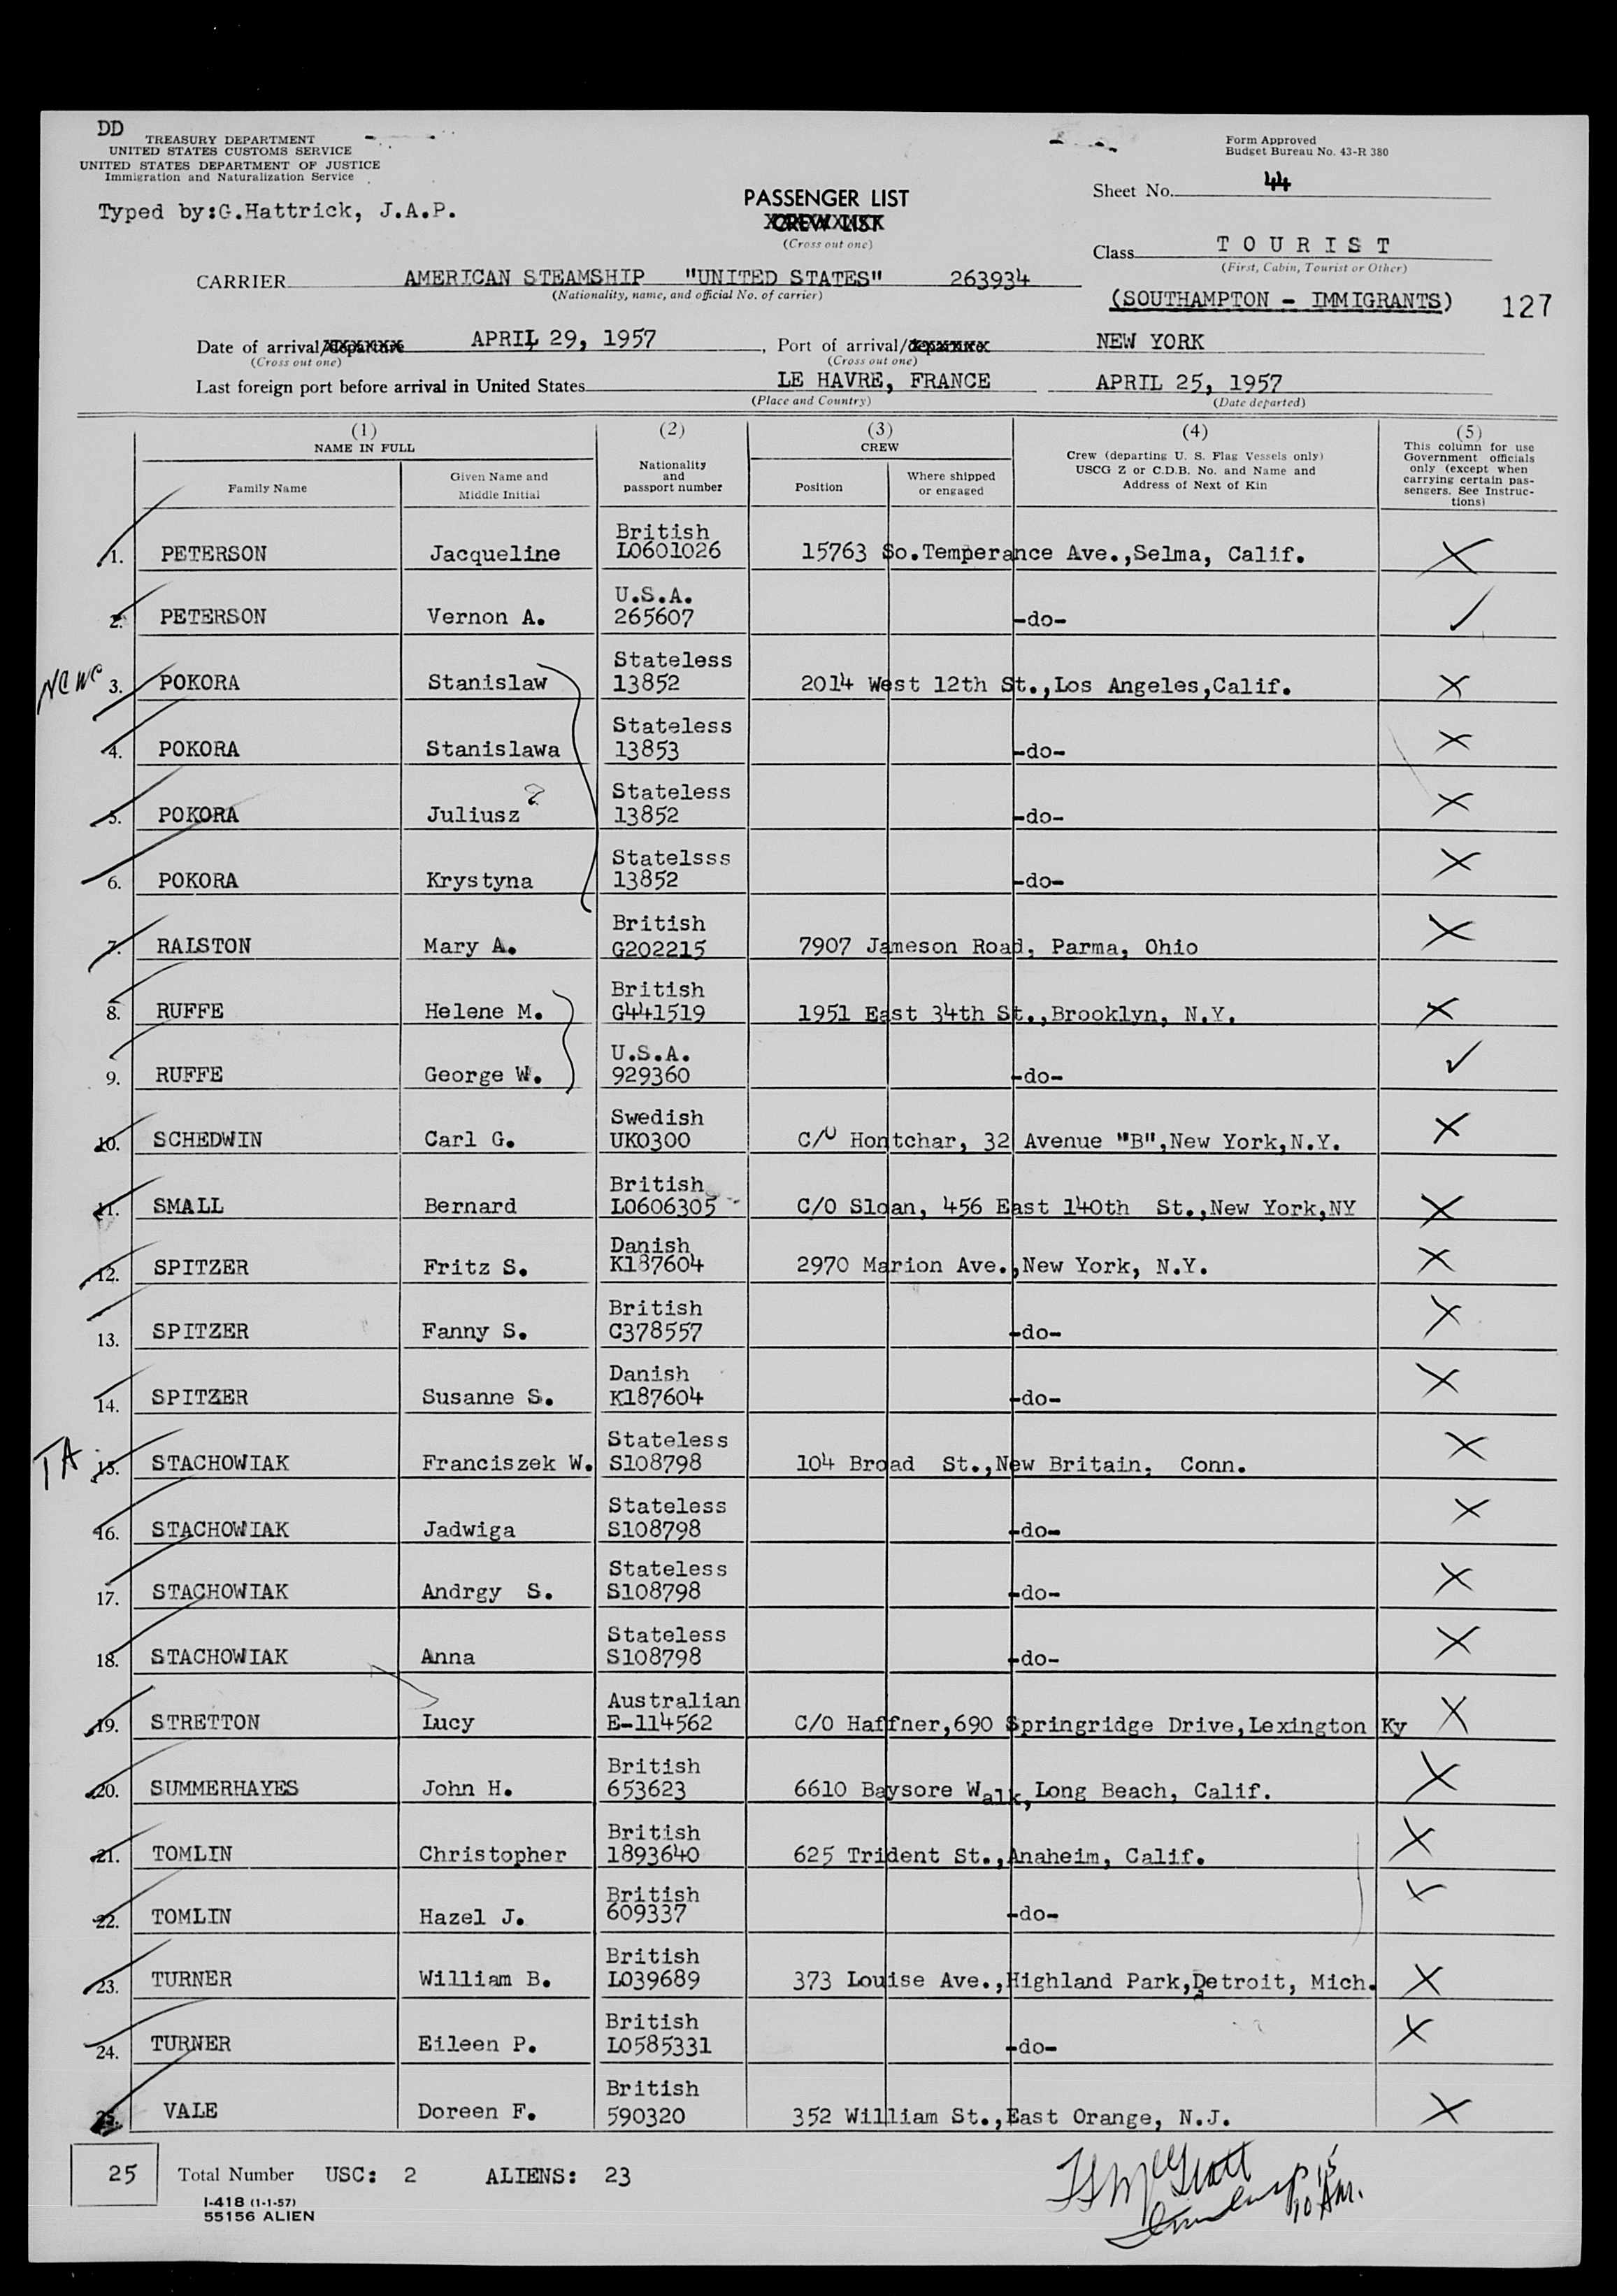 DD
TREASURY DEPARTMENT
UNITED STATES CUSTOMS SERVICE
UNITED STATES DEPARTMENT OF JUSTICE
Immigration and Naturalization Service
Form Approved
Budget Bureau No. 43-R 380
Typed by:G.Hattrick, J.A.P.
PASSENGER LIST
CREW LIST
(Cross out one)
Sheet No. 44
Class T O U R I S T
(First, Cabin, Tourist or Other)
CARRIER AMERICAN STEAMSHIP "UNITED STATES" 263934
(Nationality, name, and official No. of carrier)
(SOUTHAMPTON - IMMIGRANTS) 127
Date of arrival/departure APRIL 29, 1957, Port of arrival/departure NEW YORK
(Cross out one) (Cross out one)
Last foreign port before arrival in United States LE HAVRE, FRANCE APRIL 25, 1957
(Place and Country) (Date departed)
(1) NAME IN FULL
Family Name
Given Name and Middle Initial
(2)
Nationality and passport number
(3) CREW
Position
Where shipped or engaged
(4)
Crew (departing U. S. Flag Vessels only) USCG Z or C.D.B. No. and Name and Address of Next of Kin
(5)
This column for use Government officials only (except when carrying certain passengers. See Instructions)
1. PETERSON Jacqueline British L0601026 15763 So.Temperance Ave.,Selma, Calif. X
2. PETERSON Vernon A. U.S.A. 265607 -do- ✓
NC WC 3. POKORA Stanislaw Stateless 13852 2014 West 12th St.,Los Angeles,Calif. X
4. POKORA Stanislawa Stateless 13853 -do- X
5. POKORA Juliusz ? Stateless 13852 -do- X
6. POKORA Krystyna Statelsss 13852 -do- X
7. RALSTON Mary A. British G202215 7907 Jameson Road, Parma, Ohio X
8. RUFFE Helene M. British G441519 1951 East 34th St.,Brooklyn, N.Y. X
9. RUFFE George W. U.S.A. 929360 -do- ✓
10. SCHEDWIN Carl G. Swedish UK0300 C/O Hontchar, 32 Avenue "B",New York,N.Y. X
11. SMALL Bernard British L0606305 C/O Sloan, 456 East 140th St.,New York,NY X
12. SPITZER Fritz S. Danish K187604 2970 Marion Ave.,New York, N.Y. X
13. SPITZER Fanny S. British C378557 -do- X
14. SPITZER Susanne S. Danish K187604 -do- X
TA 15. STACHOWIAK Franciszek W. Stateless S108798 104 Broad St.,New Britain, Conn. X
16. STACHOWIAK Jadwiga Stateless S108798 -do- X
17. STACHOWIAK Andrgy S. Stateless S108798 -do- X
18. STACHOWIAK Anna Stateless S108798 -do- X
19. STRETTON Lucy Australian E-114562 C/O Haffner,690 Springridge Drive,Lexington Ky X
20. SUMMERHAYES John H. British 653623 6610 Baysore Walk,Long Beach, Calif. X
21. TOMLIN Christopher British 1893640 625 Trident St.,Anaheim, Calif. X
22. TOMLIN Hazel J. British 609337 -do- X
23. TURNER William B. British L039689 373 Louise Ave.,Highland Park,Detroit, Mich. X
24. TURNER Eileen P. British L0585331 -do- X
25. VALE Doreen F. British 590320 352 William St.,East Orange, N.J. X
25 Total Number USC: 2 ALIENS: 23
I-418 (1-1-57)
55156 ALIEN